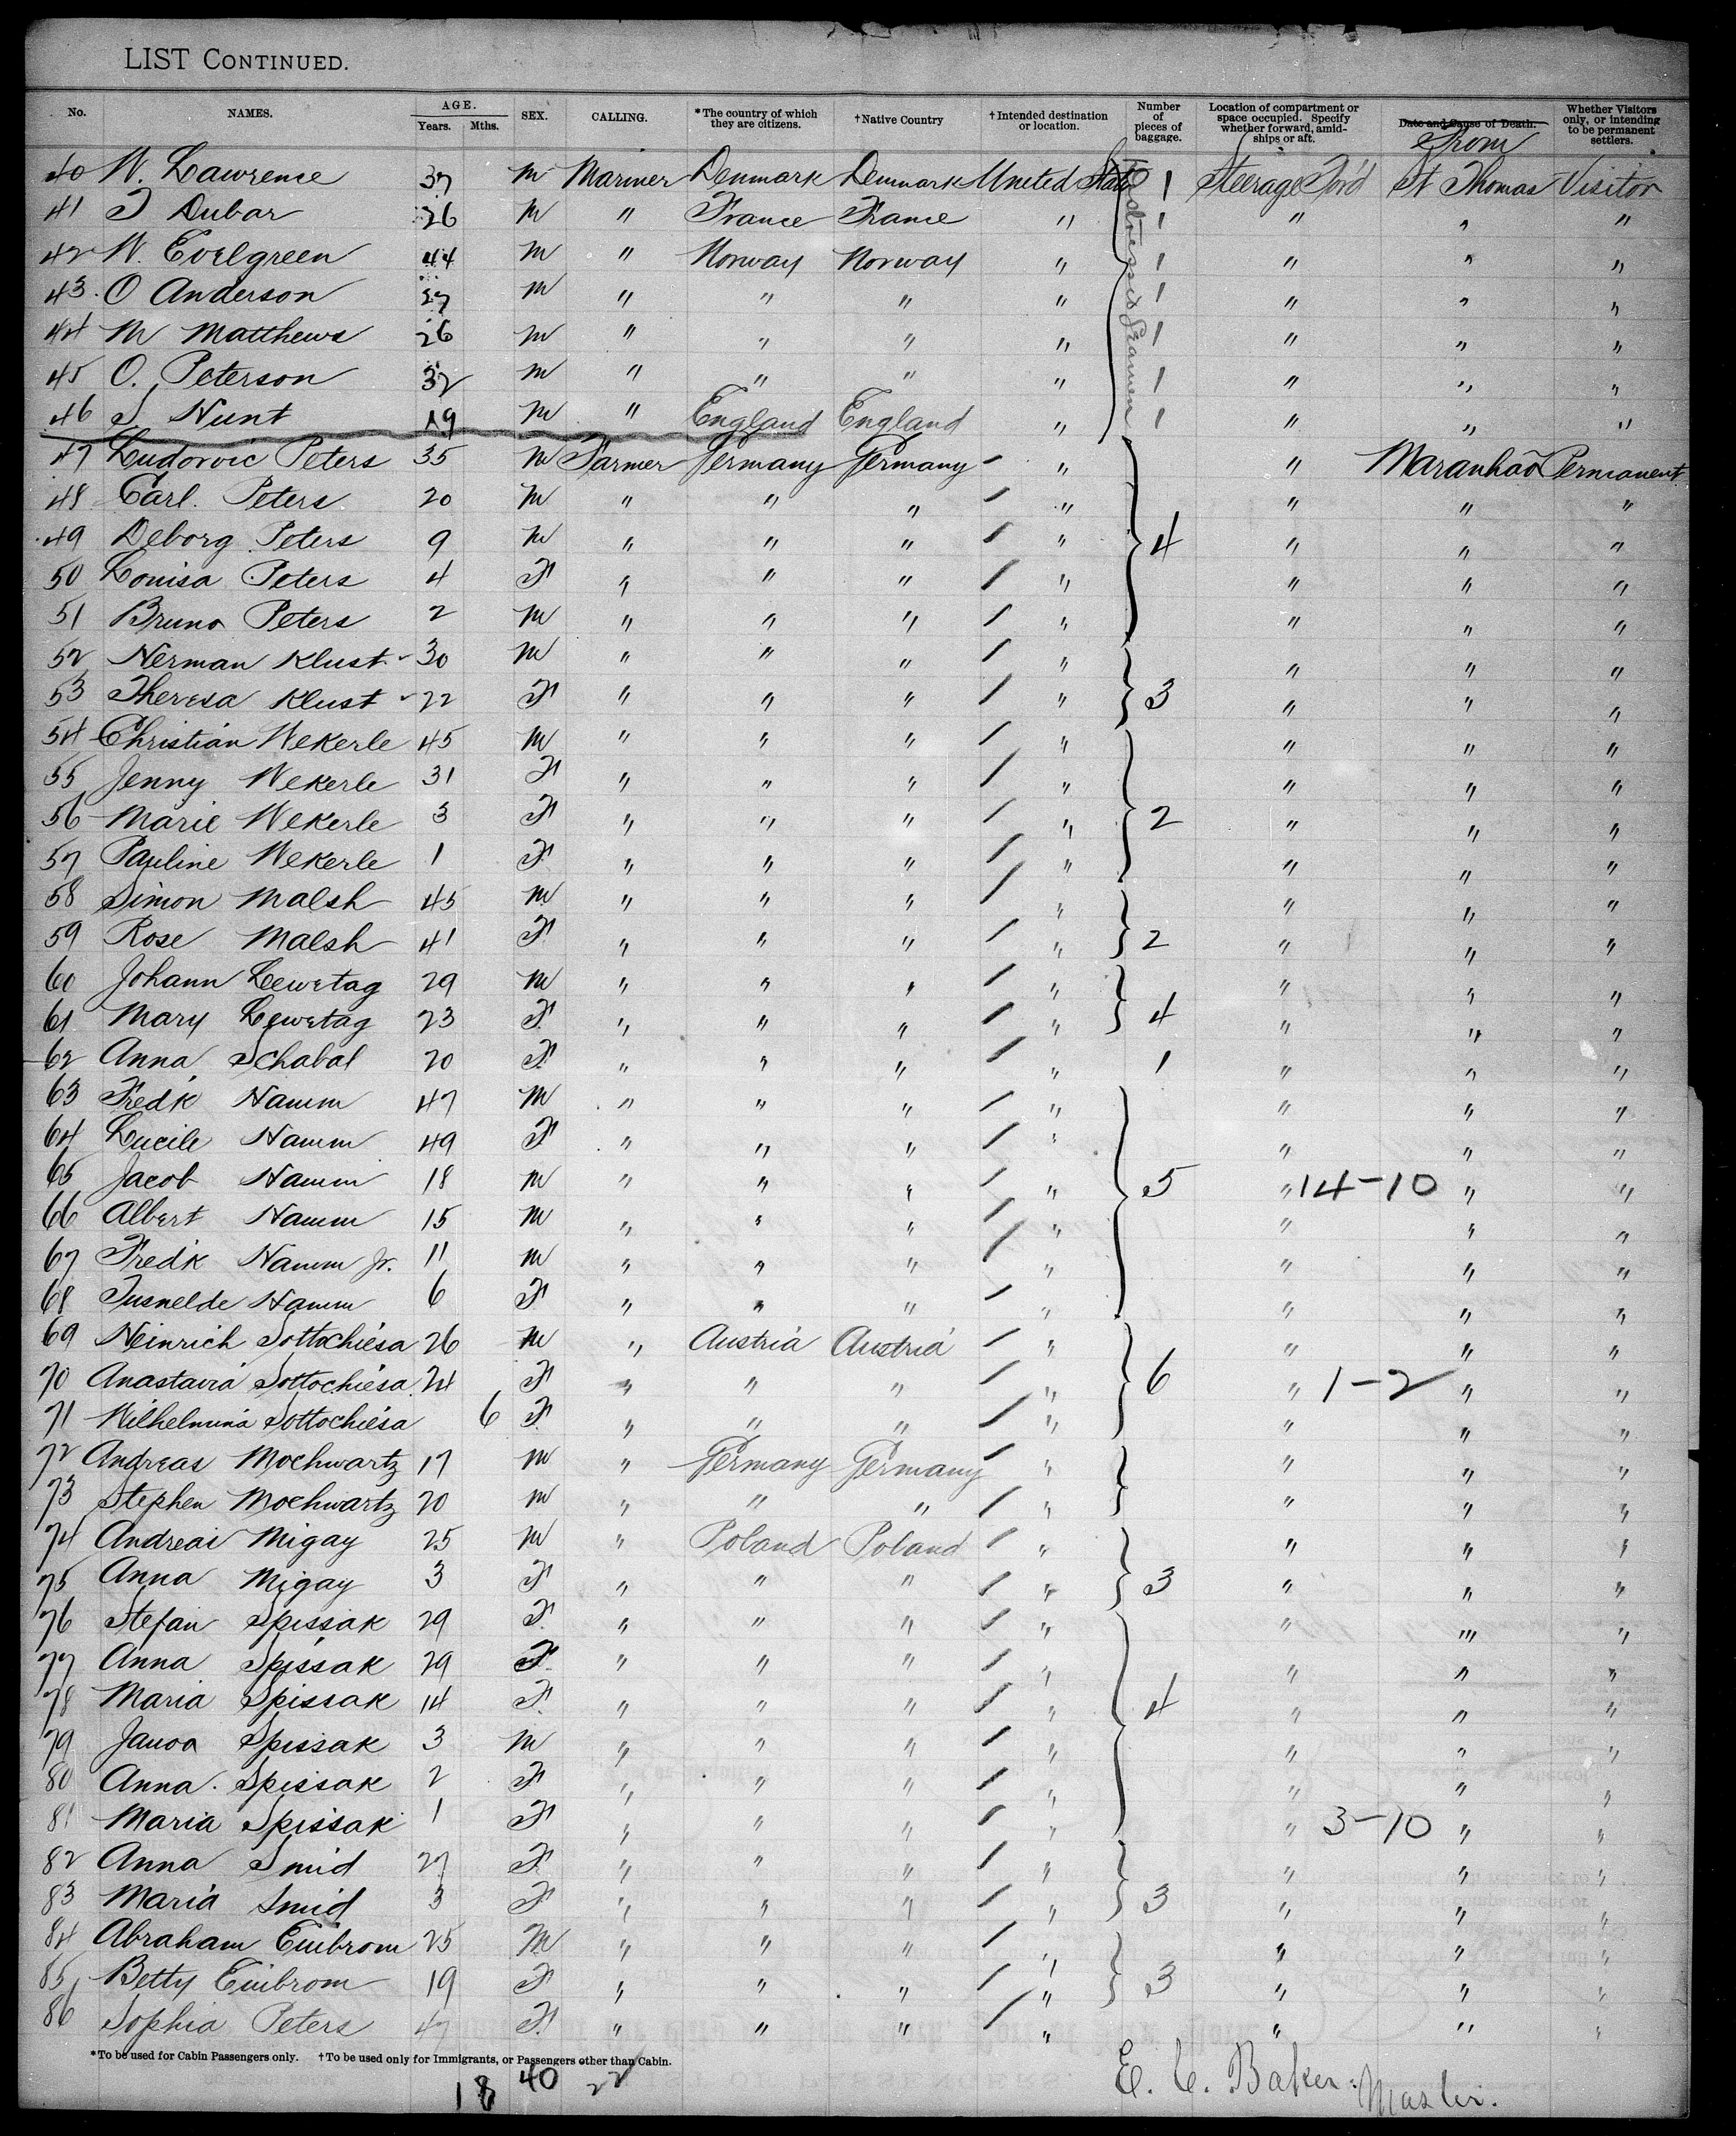 LIST CONTINUED.
No. NAMES. AGE. Years. Mths. SEX. CALLING. *The country of which they are citizens. †Native Country †Intended destination or location. Number of pieces of baggage. Location of compartment or space occupied. Specify whether forward, amidships or aft. Date and Cause of Death. From Whether Visitors only, or intending to be permanent settlers.
40 W. Lawrence 37 M Mariner Denmark Denmark United States 1 Steerage For'd St Thomas Visitor
41 J Dubar 26 M " France France " 1 " " "
42 N. Evelgreen 44 M " Norway Norway " 1 " " "
43. O Anderson 37 M " " " " 1 " " "
44 M Matthews 26 M " " " " 1 " " "
45 O. Peterson 32 M " " " " 1 " " "
46 S Hunt 19 M " England England " 1 " " "
Seamen
47 Ludovic Peters 35 M Farmer Germany Germany " " Maranhão Permanent
48 Carl. Peters 20 M " " " " " " "
49 Deborg Peters 9 M " " " " 4 " " "
50 Louisa Peters 4 F " " " " " " "
51 Bruno Peters 2 M " " " " " " "
52 Herman Klust 30 M " " " " " " "
53 Theresa Klust 22 F " " " " 3 " " "
54 Christian Wekerle 45 M " " " " " " "
55 Jenny Wekerle 31 F " " " " " " "
56 Marie Wekerle 3 F " " " " 2 " " "
57 Pauline Wekerle 1 F " " " " " " "
58 Simon Malsh 45 M " " " " " " "
59 Rose Malsh 41 F " " " " 2 " " "
60 Johann Lewetag 29 M " " " " " " "
61 Mary Lewetag 23 F " " " " 4 " " "
62 Anna Schabal 20 F " " " " 1 " " "
63 Fredk Hamm 47 M " " " " " " "
64 Lucile Hamm 49 F " " " " " " "
65 Jacob Hamm 18 M " " " " 5 " 14-10 " "
66 Albert Hamm 15 M " " " " " " "
67 Fredk Hamm Jr. 11 M " " " " " " "
68 Tusnelde Hamm 6 F " " " " " " "
69 Heinrich Sottochiesa 26 M " Austria Austria " " " "
70 Anastavia Sottochiesa 24 F " " " " 6 " 1-2 " "
71 Wilhelmina Sottochiesa 6 F " " " " " " "
72 Andreas Mochwartz 17 M " Germany Germany " " " "
73 Stephen Mochwartz 20 M " " " " " " "
74 Andreas Migay 25 M " Poland Poland " " " "
75 Anna Migay 3 F " " " " 3 " " "
76 Stefan Spissak 29 F. " " " " " " "
77 Anna Spissak 29 F " " " " " " "
78 Maria Spissak 14 F " " " " 4 " " "
79 Janoa Spissak 3 M " " " " " " "
80 Anna. Spissak 2 F " " " " " " "
81 Maria Spissak 1 F " " " " " 3-10 " "
82 Anna Smid 27 F " " " " " " "
83 Maria Smid 3 F " " " " 3 " " "
84 Abraham Euibrom 25 M " " " " " " "
85 Betty Euibrom 19 F " " " " 3 " " "
86 Sophia Peters 47 F. " " " " " " "
*To be used for Cabin Passengers only. †To be used only for Immigrants, or Passengers other than Cabin.
18 40 22
E. C. Baker. Master.